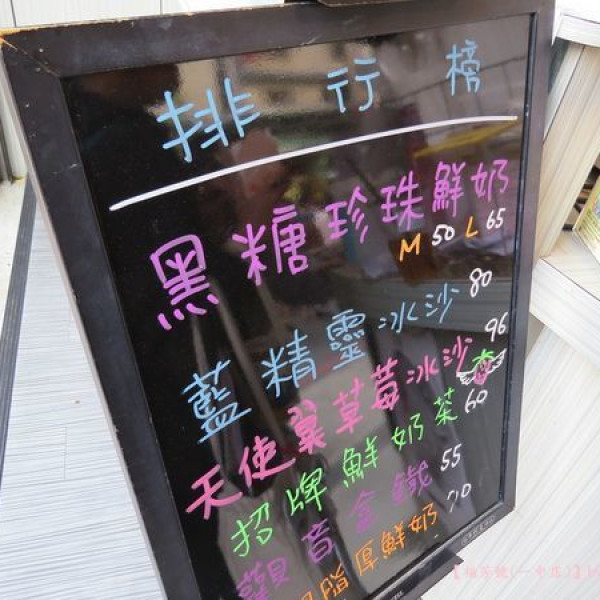 排行榜
黑糖珍珠鮮奶
M 50 L 65
藍精靈冰沙 80
天使翼草莓冰沙 96
招牌鮮奶茶 60
觀音拿鐵 55
腦鮮奶